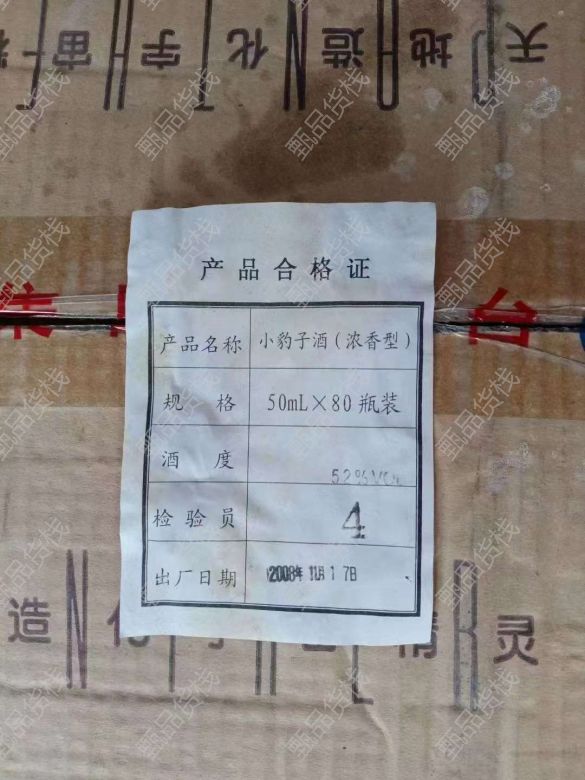 天地造化宇宙
产品合格证
产品名称 小豹子酒(浓香型)
规 格 50mL×80瓶装
酒 度 52%VOL
检验员 4
出厂日期 2008年11月17日
造化 情灵
甄品货栈